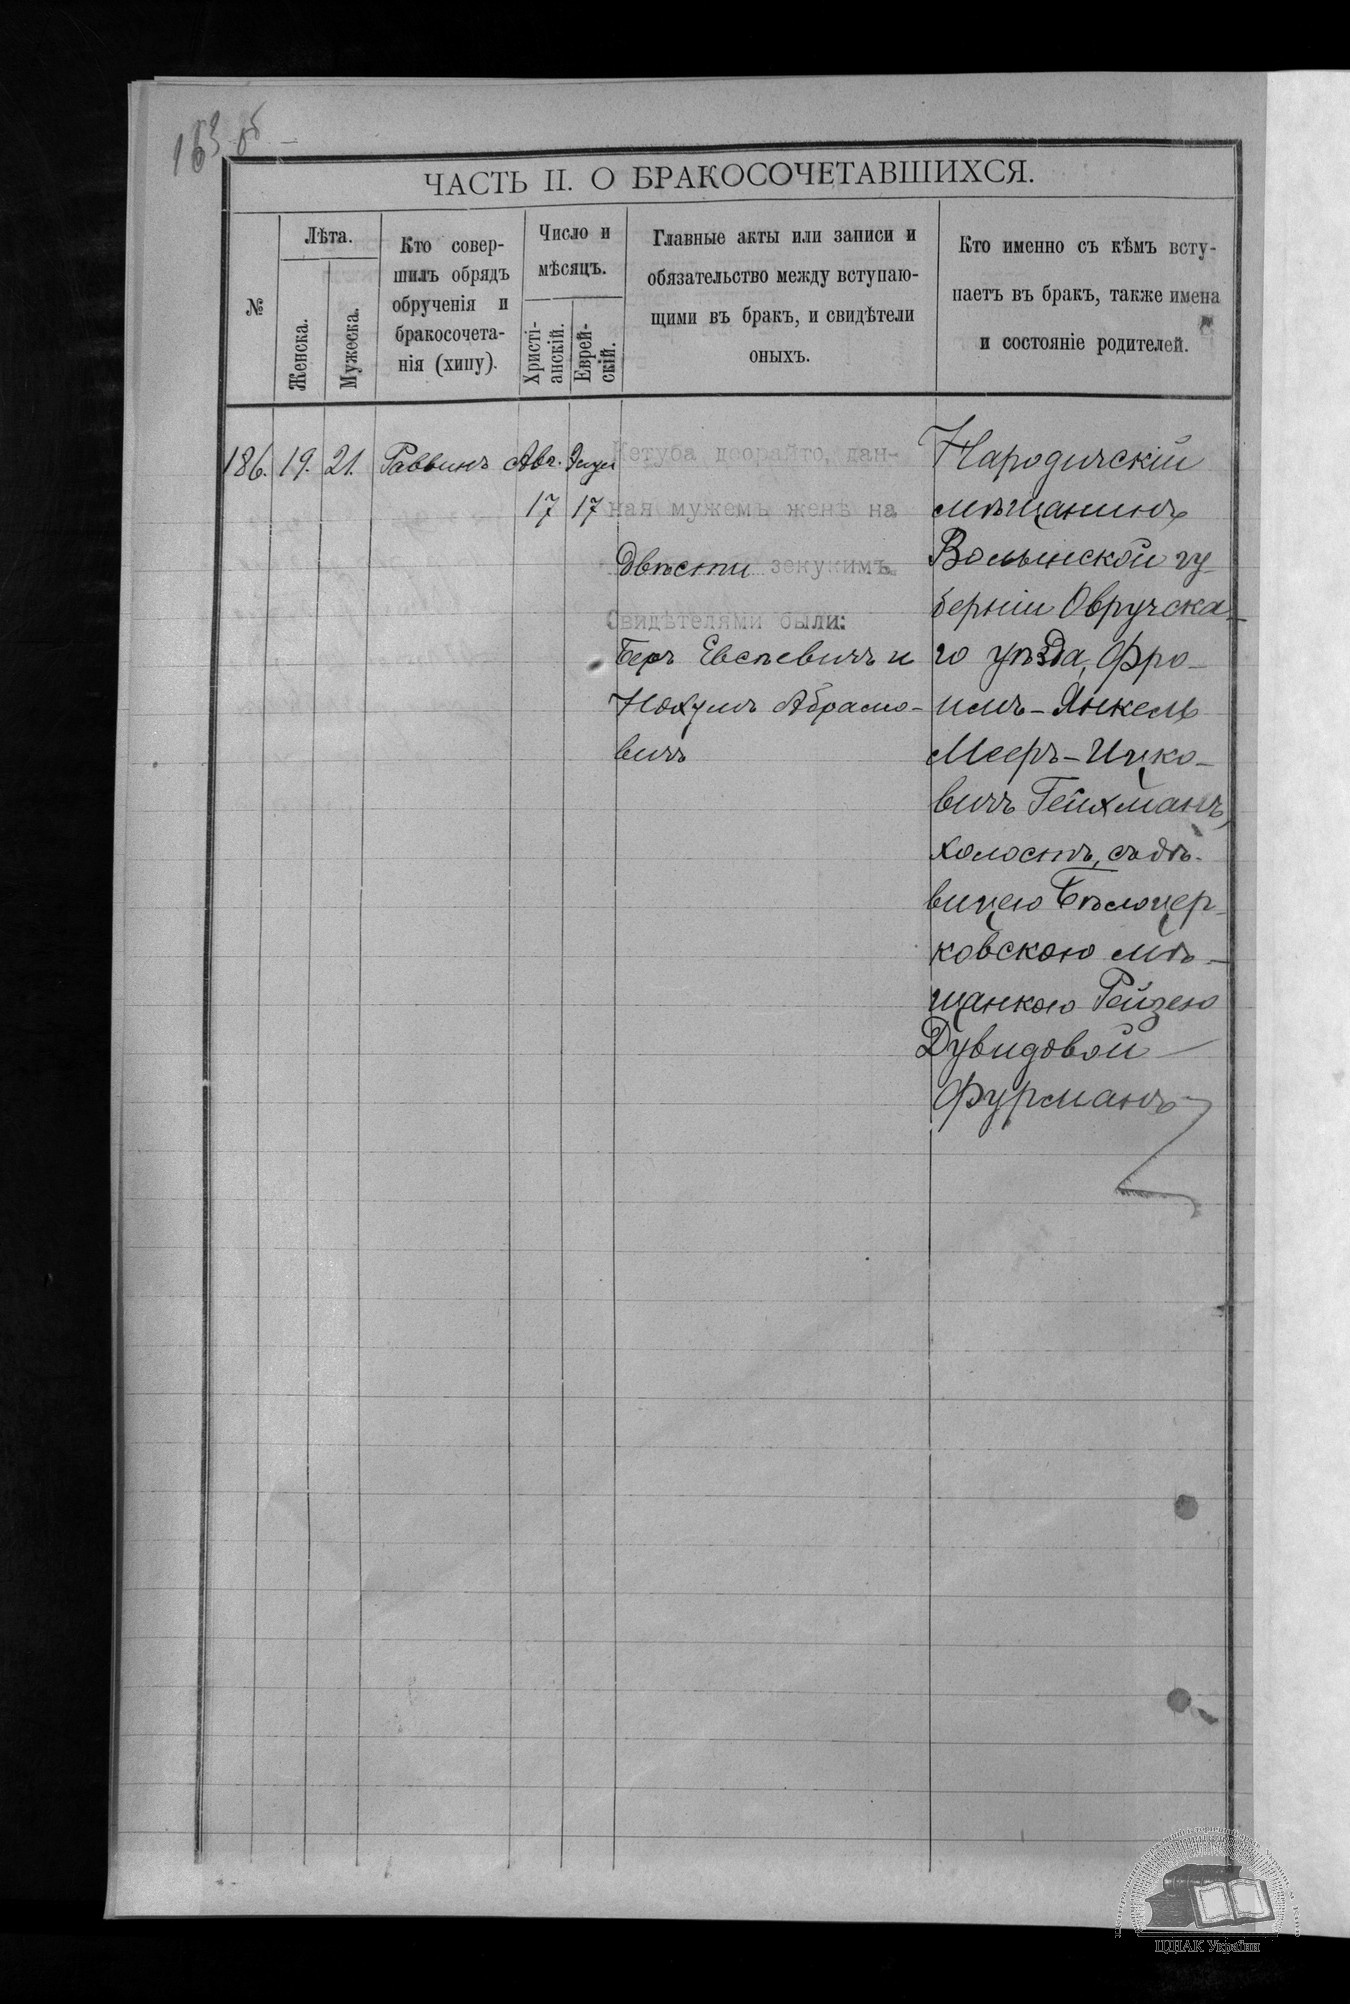 163 об
ЧАСТЬ II. О БРАКОСОЧЕТАВШИХСЯ.
№
Лѣта.
Женска.
Мужеска.
Кто совер-
шилъ обрядъ
обрученія и
бракосочета-
нія (хипу).
Число и
мѣсяцъ.
Христі-
анскій.
Еврей-
скій.
Главные акты или записи и
обязательство между вступаю-
щими въ бракъ, и свидѣтели
оныхъ.
Кто именно съ кѣмъ всту-
паетъ въ бракъ, также имена
и состояніе родителей.
186. 19. 21. Раввинъ Авг. Элул
17 17
Кетуба деорайто, дан-
ная мужемъ женѣ на
двѣсти зекукимъ.
Свидѣтелями были:
Беръ Евсѣевичъ и
Нахумъ Абрамо-
вичъ
Народичскій
мѣщанинъ
Волынской гу-
берніи Овручска-
го уѣзда, Фро-
имъ-Янкель
Мееръ-Ицко-
вичъ Гейхманъ,
холостъ, съ дѣ-
вицею Бѣлоцер-
ковскою мѣ-
щанкою Рейзею
Дувидовой
Фурманъ
ЦДІАК України